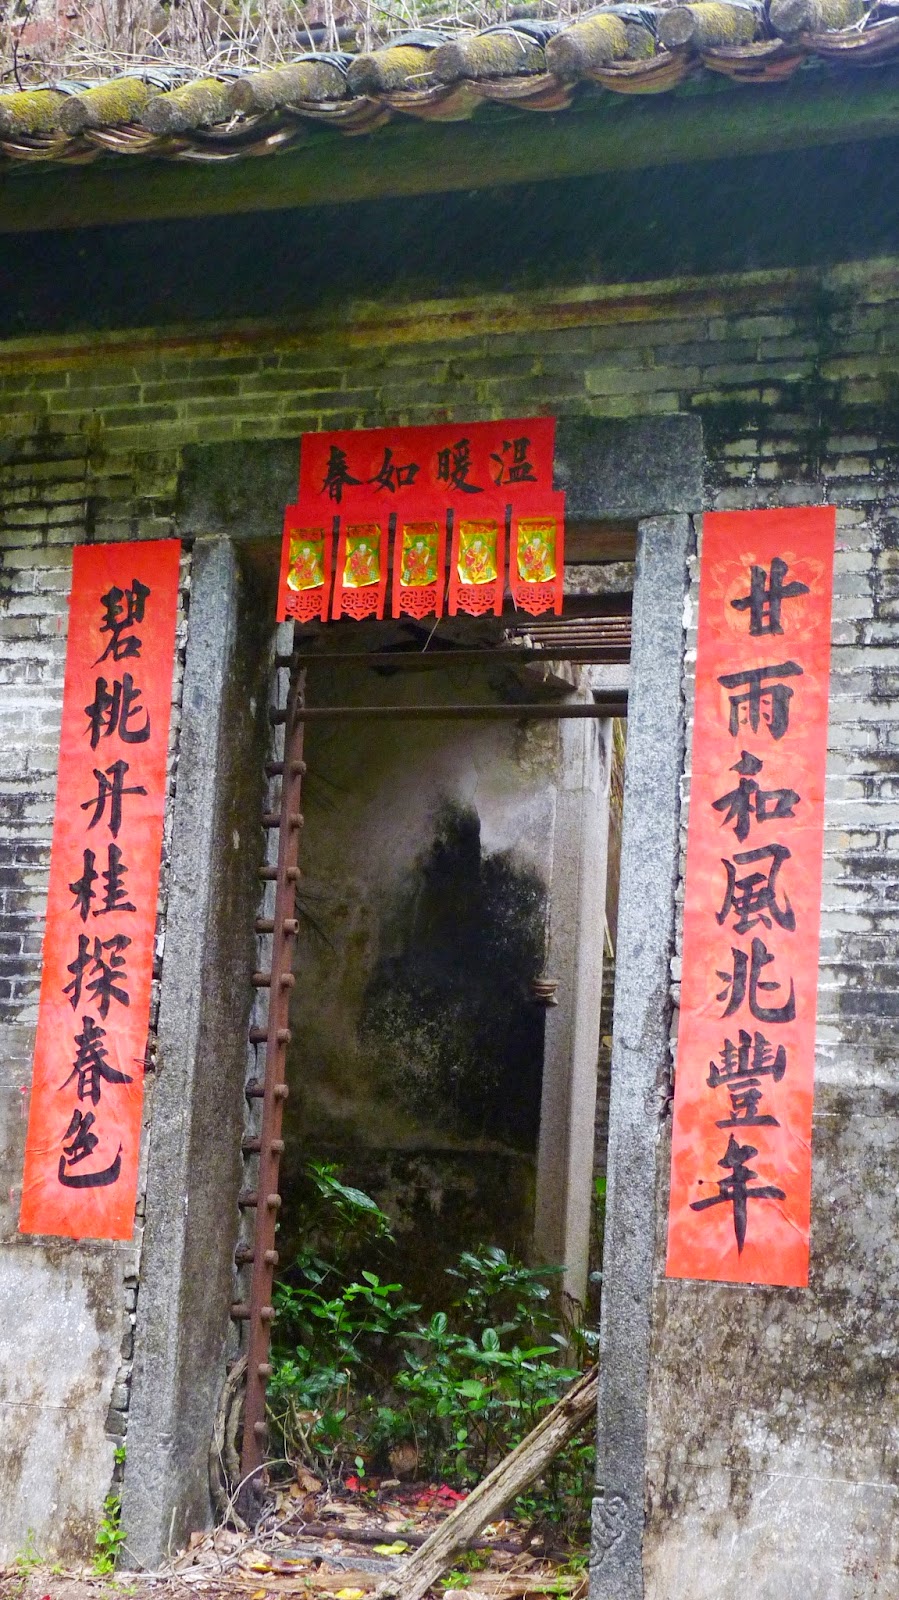 温暖如春
甘雨和風兆豐年
碧桃丹桂探春色